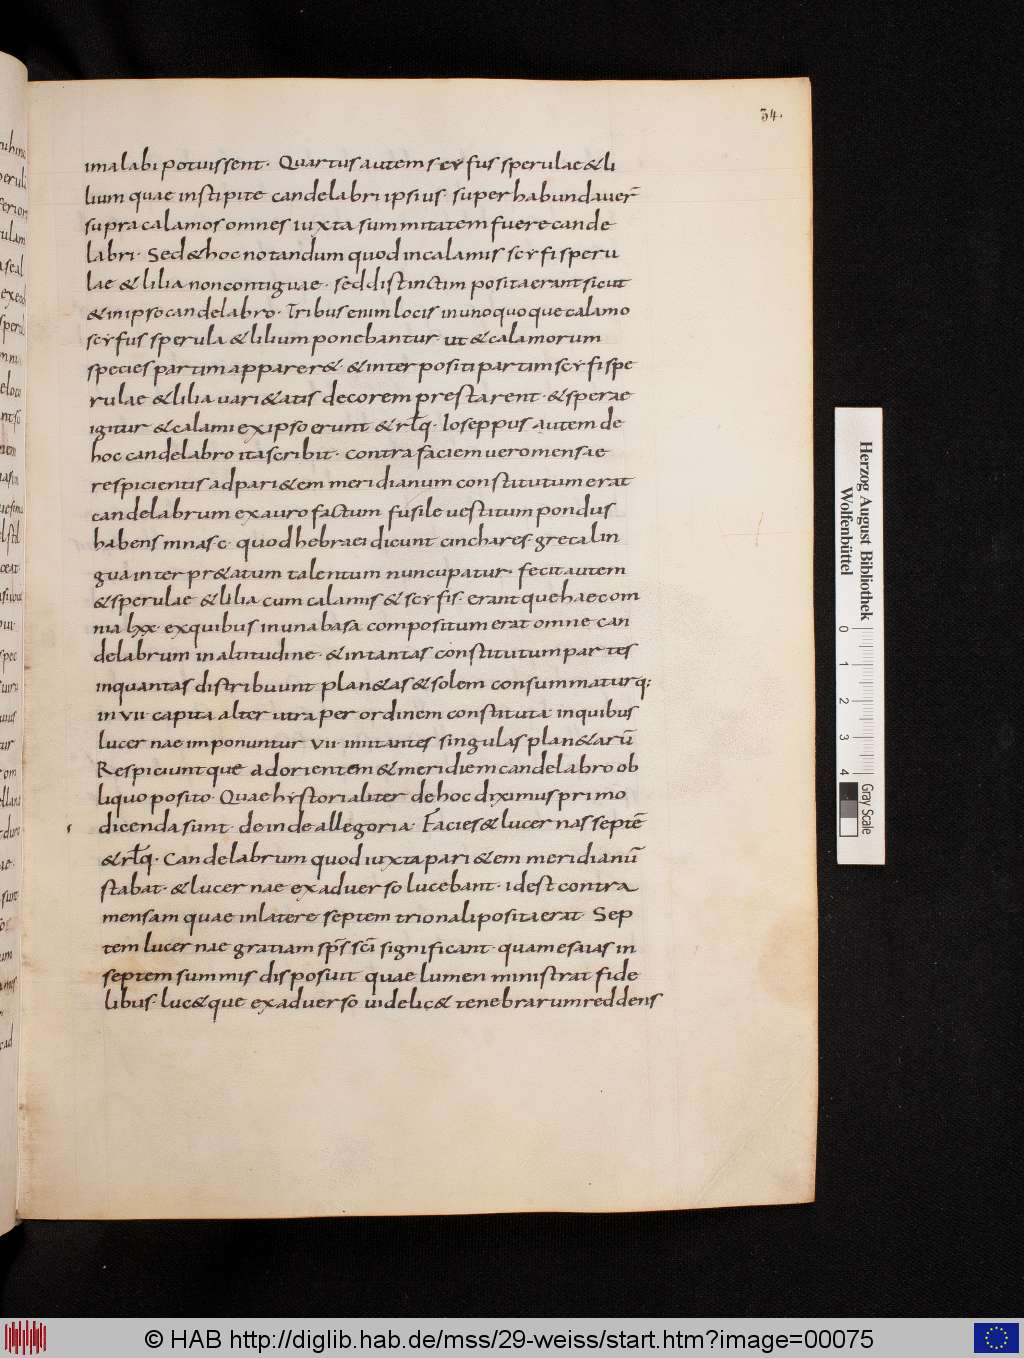 34.
ima labi potuissent· Quartus autem scyfus sperulae & li
lium quae in stipite candelabri ipsius· superhabundauer̄
supra calamos omnes iuxta summitatem fuere cande
labri· Sed & hoc notandum quod in calamis scyfi speru
lae & lilia non contiguae· sed distinctim posita erant sicut
& in ipso candelabro· Tribus enim locis in unoquoque calamo
scyfus sperula & lilium ponebantur ut & calamorum
species partim apparer&· & interpositi partim scyfi spe
rulae & lilia uari&atis decorem prestarent· & sperae
igitur & calami ex ipso erunt & rƚq· Ioseppus autem de
hoc candelabro ita scribit· contra faciem uero mensae
respicientis ad pari&em meridianum constitutum erat
candelabrum ex auro factum fusile uestitum pondus
habens mnas c· quod hebraei dicunt cinchares· greca lin
gua interpr&atum talentum nuncupatur· fecit autem
& sperulae & lilia cum calamis & scyfis· erantque haec om
nia lxx· ex quibus in una basa compositum erat omne can
delabrum in altitudine· & in tantas constitutum partes
in quantas distribuunt plan&as & solem consummaturq;
in vii· capita alterutra per ordinem constituta· in quibus
lucernae imponuntur vii· imitantes singulas plan&arū
Respiciuntque ad orientem & meridiem candelabro ob
liquo posito· Quae hystorialiter de hoc diximus primo
dicenda sunt· deinde allegoria· Facies & lucernas septē
& rƚq· Candelabrum quod iuxta pari&em meridianū
stabat· & lucernae ex aduerso lucebant· id est contra
mensam quae in latere septemtrionali posita erat· Sep
tem lucernae gratiam sp̄s sc̄i significant· quam esaias in
septem summis disposuit quae lumen ministrat fide
libus· luc&que ex aduerso uidelic& tenebrarum reddens
Herzog August Bibliothek
Wolfenbüttel
0 1 2 3 4
Gray Scale
© HAB http://diglib.hab.de/mss/29-weiss/start.htm?image=00075